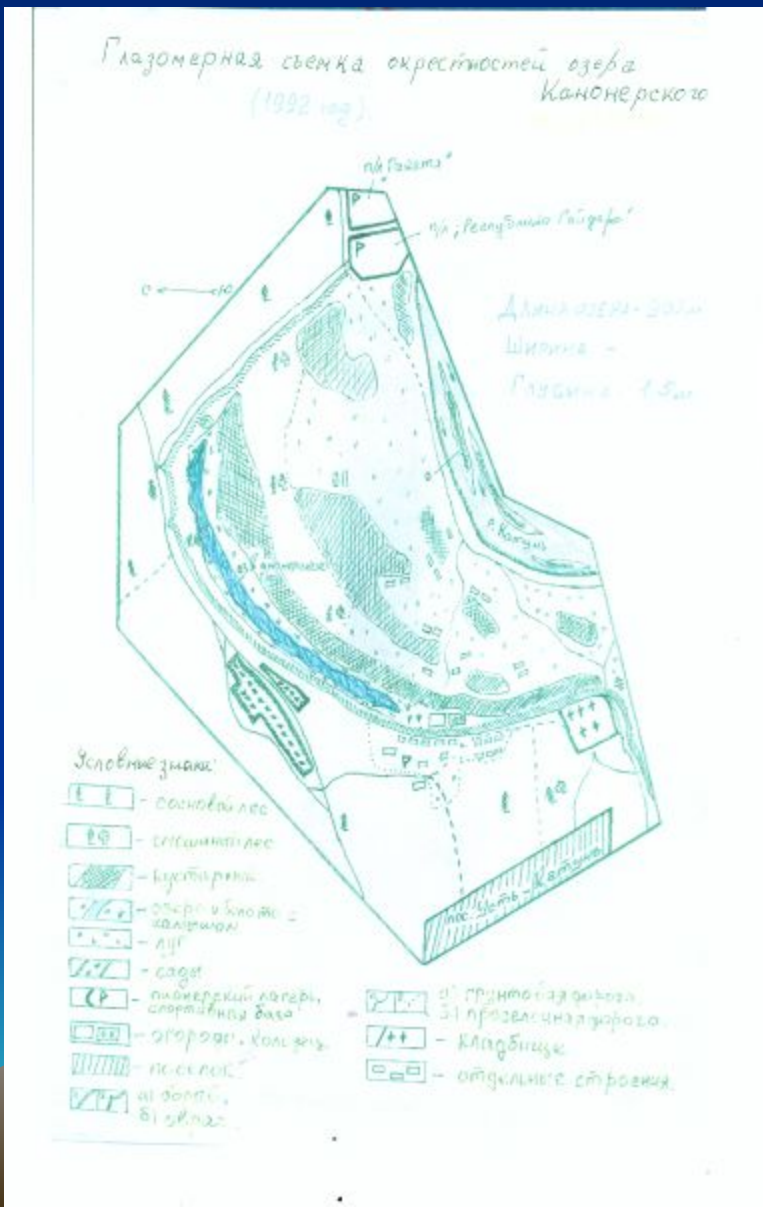 Глазомерная съемка окрестностей озера
Канонерского
(1992 год)
п/л
п/л „Республика Гайдара"
С Ю
Длина озера -
Ширина -
Глубина 1.5м
р. Катунь
пос. Усть - Катунь
Условные знаки:
- сосновый лес
- смешанный лес
- кустарник
- озеро и болото с
камышом
- луг
- сады
- пионерский лагерь,
спортивная база
- огороды,
- поселок
а)
б)
а) грунтовая дорога
б) проселочная дорога
- кладбище
- отдельные строения.